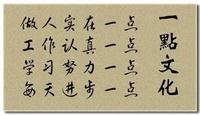 一點文化
做人实在一点
工作认真一点
学习努力一点
每天进步一点